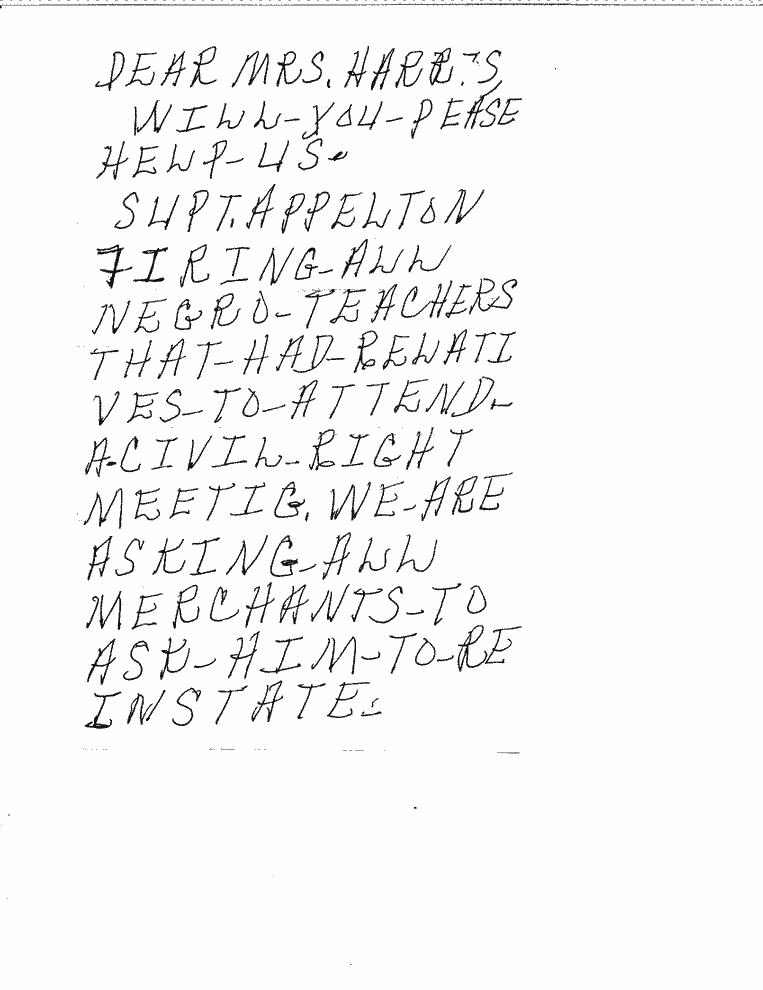 DEAR MRS. HARRIS,
WILL-YOU-PEASE
HELP-US.
SUPT. APPELTON
FIRING-ALL
NEGRO-TEACHERS
THAT-HAD-RELATI
VES-TO-ATTEND-
A-CIVIL-RIGHT
MEETIG. WE-ARE
ASKING-ALL
MERCHANTS-TO
ASK-HIM-TO-RE
INSTATE.